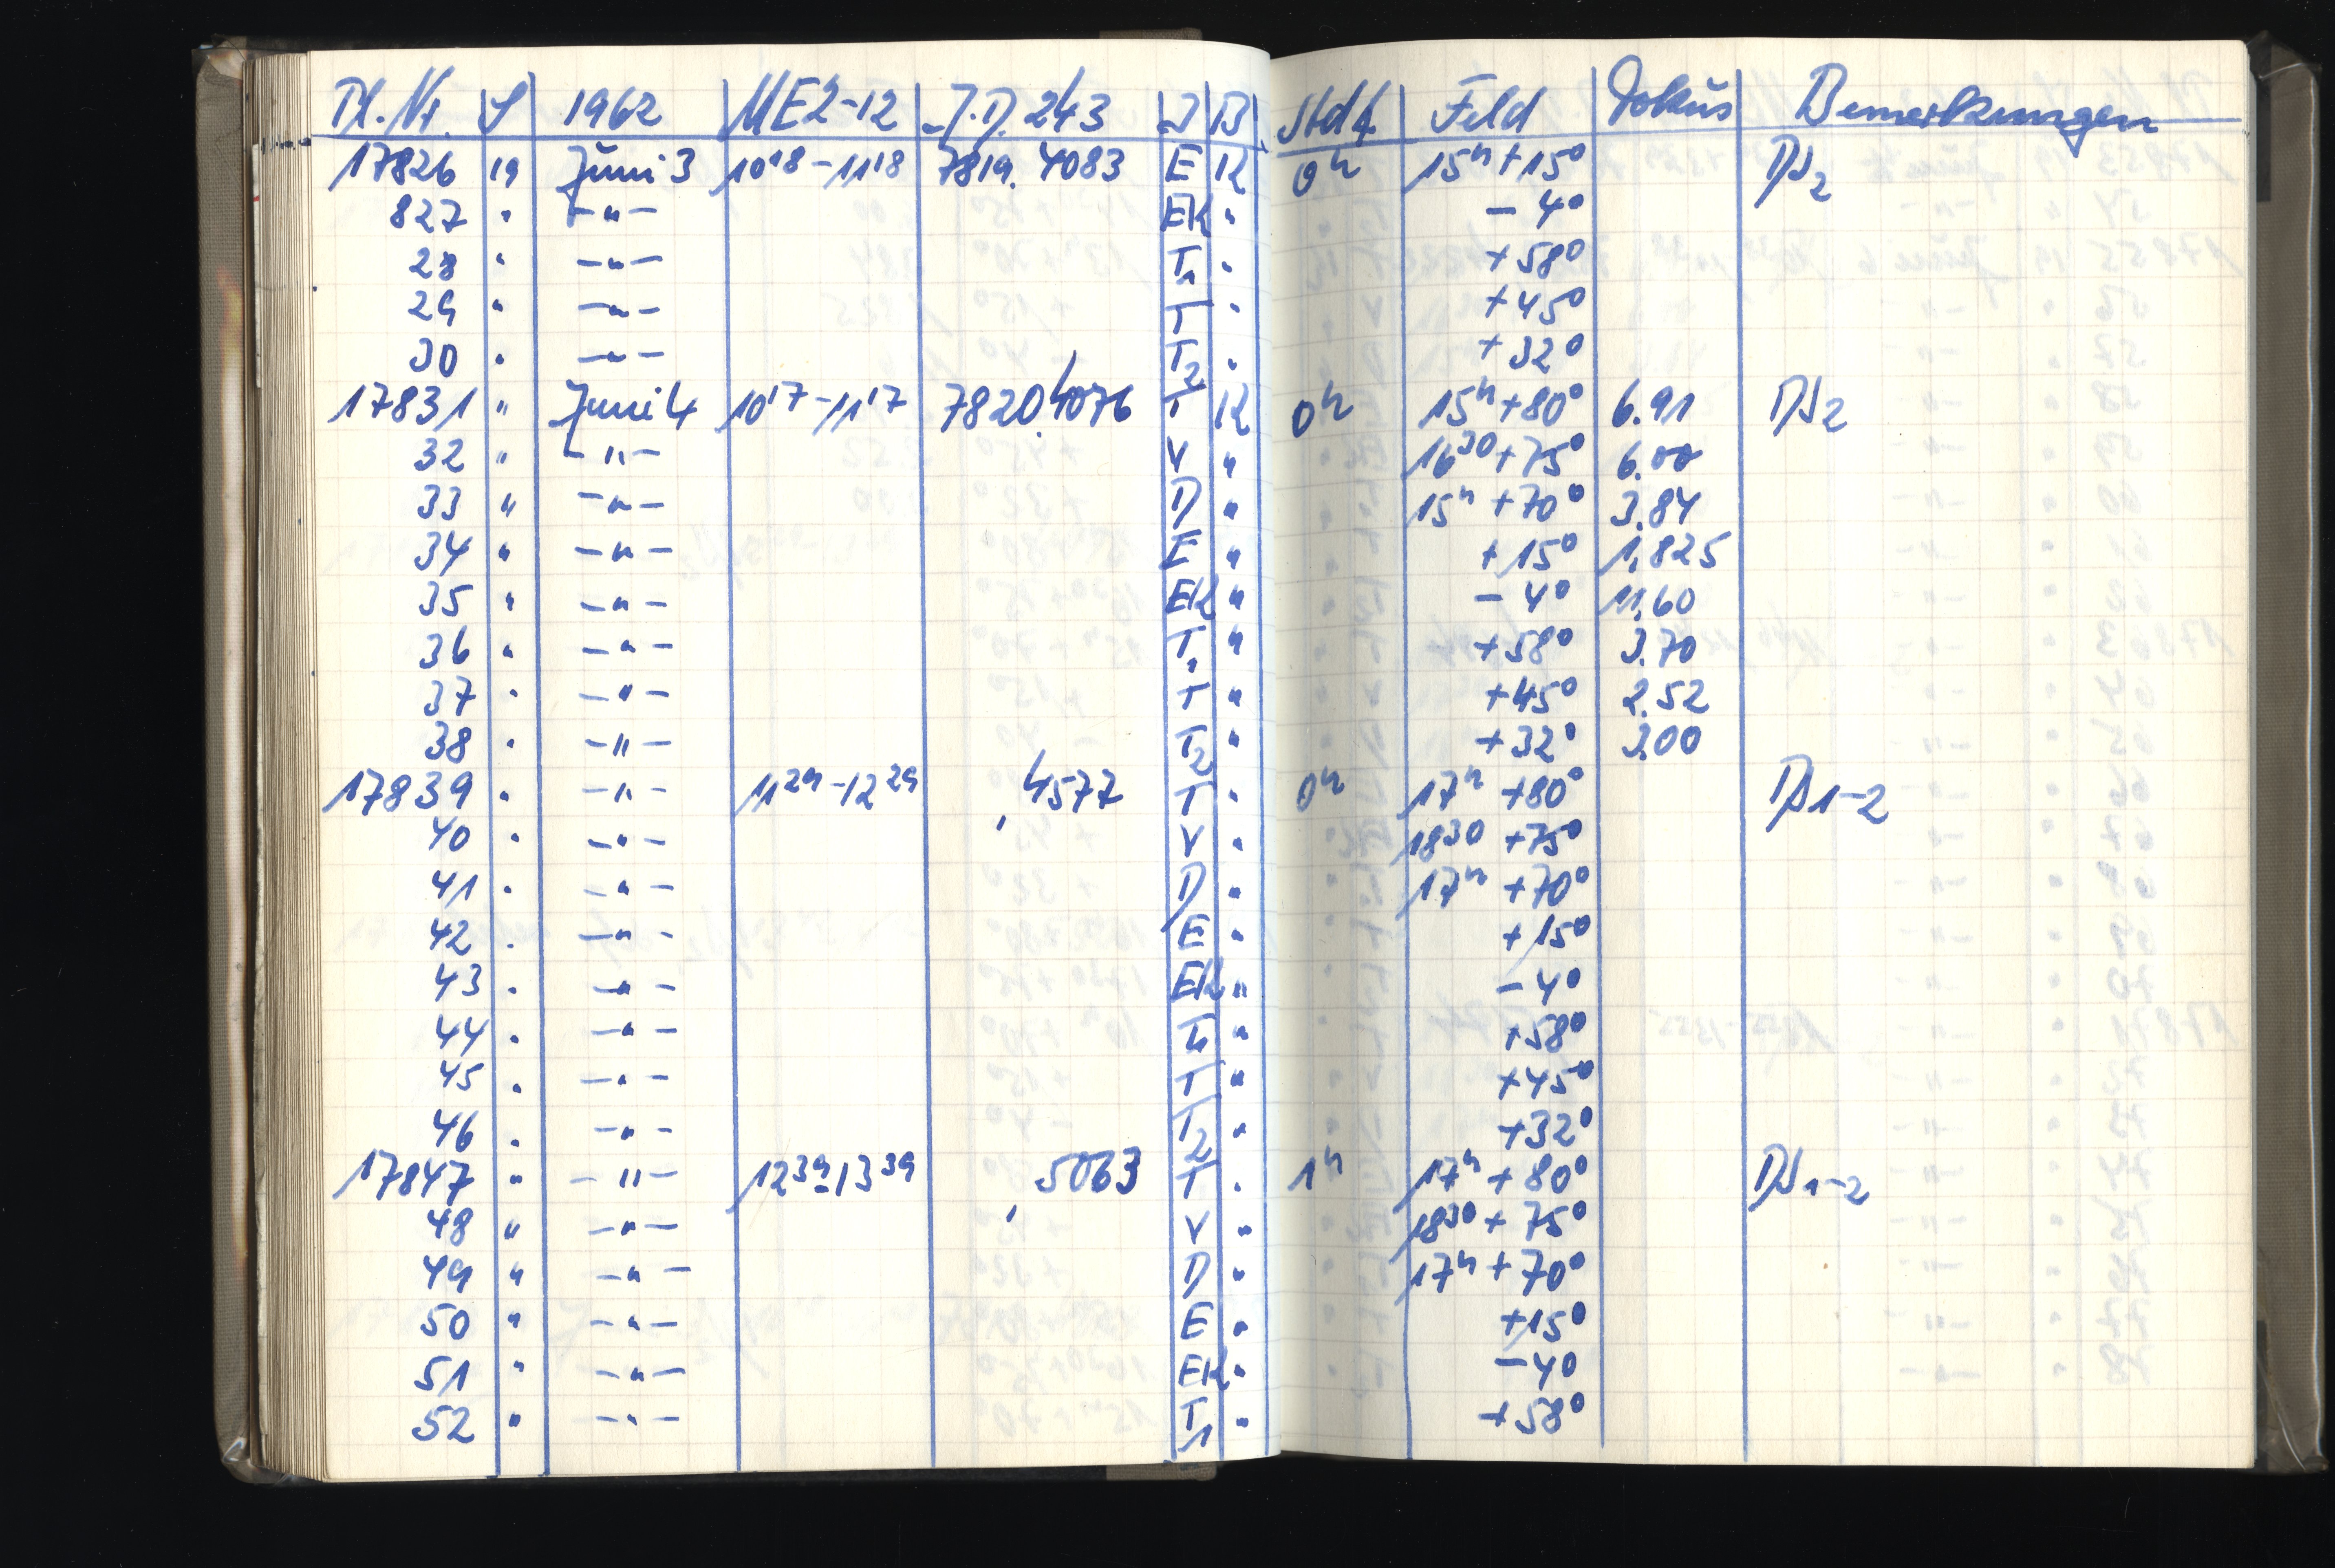 Pl. Nr. S 1962 MEZ-12 J.D. 243 I B Stdf. Feld Fokus Bemerkungen
17826 19 Juni 3 10¹⁸-11¹⁸ 7819.4083 E K 0ʰ 15ʰ+15° DS2
827 " -"- EK " -4°
28 " -"- T1 " +58°
29 " -"- T " +45°
30 " -"- T2 " +32°
17831 " Juni 4 10¹⁷-11¹⁷ 7820.4076 T K 0ʰ 15ʰ+80° 6.91 DS2
32 " -"- V " 16³⁰+75° 6.00
33 " -"- D " 15ʰ+70° 3.84
34 " -"- E " +15° 1,825
35 " -"- EK " -4° 11,60
36 " -"- T1 " +58° 3.70
37 " -"- T " +45° 2.52
38 " -"- T2 " +32° 3.00
17839 " -"- 11²⁹-12²⁹ ,4577 T " 0ʰ 17ʰ+80° DS1-2
40 " -"- V " 18³⁰+75°
41 " -"- D " 17ʰ+70°
42 " -"- E " +15°
43 " -"- EK " -4°
44 " -"- T1 " +58°
45 " -"- T " +45°
46 " -"- T2 " +32°
17847 " -"- 12³⁹-13³⁹ ,5063 T " 1ʰ 17ʰ+80° DS1-2
48 " -"- V " 18³⁰+75°
49 " -"- D " 17ʰ+70°
50 " -"- E " +15°
51 " -"- EK " -4°
52 " -"- T1 " +58°